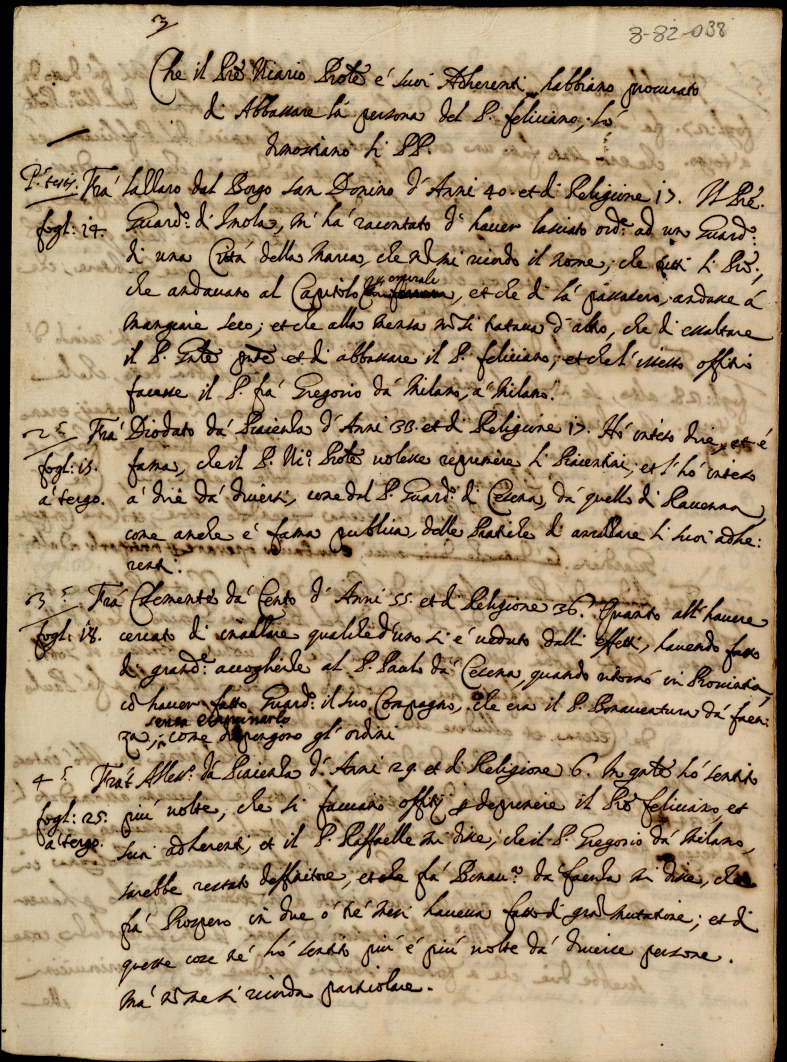 3
8-82-038
Che il Prē Vicario Prōle é suoi Adherenti habbiano procurato
di Abbassare la persona del P. feliciano, lo
dimostrano li PP.
Pº. testis. Frá lallaro dal Borgo san Donino d'Anni 40. et di Religione 17. Il Prē.
fogl: 14. Guardº. d'Imola, m'há racontato d'haver lasciato ordº. ad un Guardº:
di una Cittá della Marca, che nō mi ricordo il nome, che tutti li Prī.,
che andavano al Capitolo generale, et che di lá passasero, andasse á
mangiare seco; et che alla mensa nō si tratava d'altro, che di essaltare
il P. Grāle pntē et di abbassare il P. feliciano; et che l'istesso offitio
facesse il P. frá Gregorio dá Milano, á Milano.
2º Frá Diodato dá Piacenza d'Anni 33. et di Religione 17. Hó inteso dire, et é
fogl: 15. fama, che il P. Viº. Prōle volesse reprimere li Piacentini, et l'hó inteso
á tergo. á dire dá diversi, come dal P. Guardº. di Cesena, dá quello di Ravenna,
come anche é fama publica, delle Pratiche di assaltare li suoi adhe:
renti.
3º Frá Clemente dá Cento d'Anni 55 et di Religione 36. Quanto all'havere
fogl: 18. cercato di inalzare qualched'uno si é veduto dalli effetti, havendo fatto
di grandº. accoglienze al P. Paulo dá Cesena, quando ritornó in Provintia,
cō haver fatto Guardº. il suo Compagno, che era il P. Bonaventura dá faen:
senza esaminarlo
za, come dispongono gl'ordini
4º Frá Alless. dá Piacenza d'Anni 29. et di Religione 6. In gnāle hó sentito
fogl: 25. piú volte, che si facevano offitij p deprimere il Prē feliciano, et
á tergo. suoi adherenti, et il P. Raffaelle mi disse, che il P. Gregorio dá Milano,
sarebbe restato deffinitore, et che frá Bonavrº. dá faenza mi disse, che
frá Prospero in due ó tré mesi haveva fatto di gran mutatione; et di
queste cose né hó sentito piú é piú volte dá diverse persone.
má nō me si ricorda particolare.